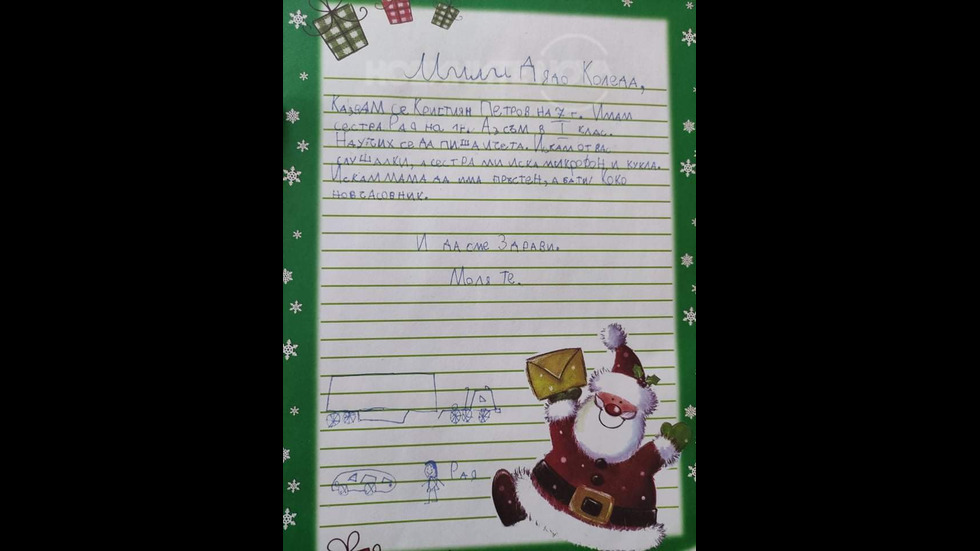 Мили Дядо Коледа,
Казвам се Кристиян Петров на 7 г. Имам
сестра Рая на 1г. Аз съм в I клас.
Научих се да пиша и чета. Искам от вас
слушалки, а сестра ми иска микрофон и кукла.
Искам мама да има пръстен, а бати Коко
нов часовник.
И да сме Здрави.
Моля Те.
Рая